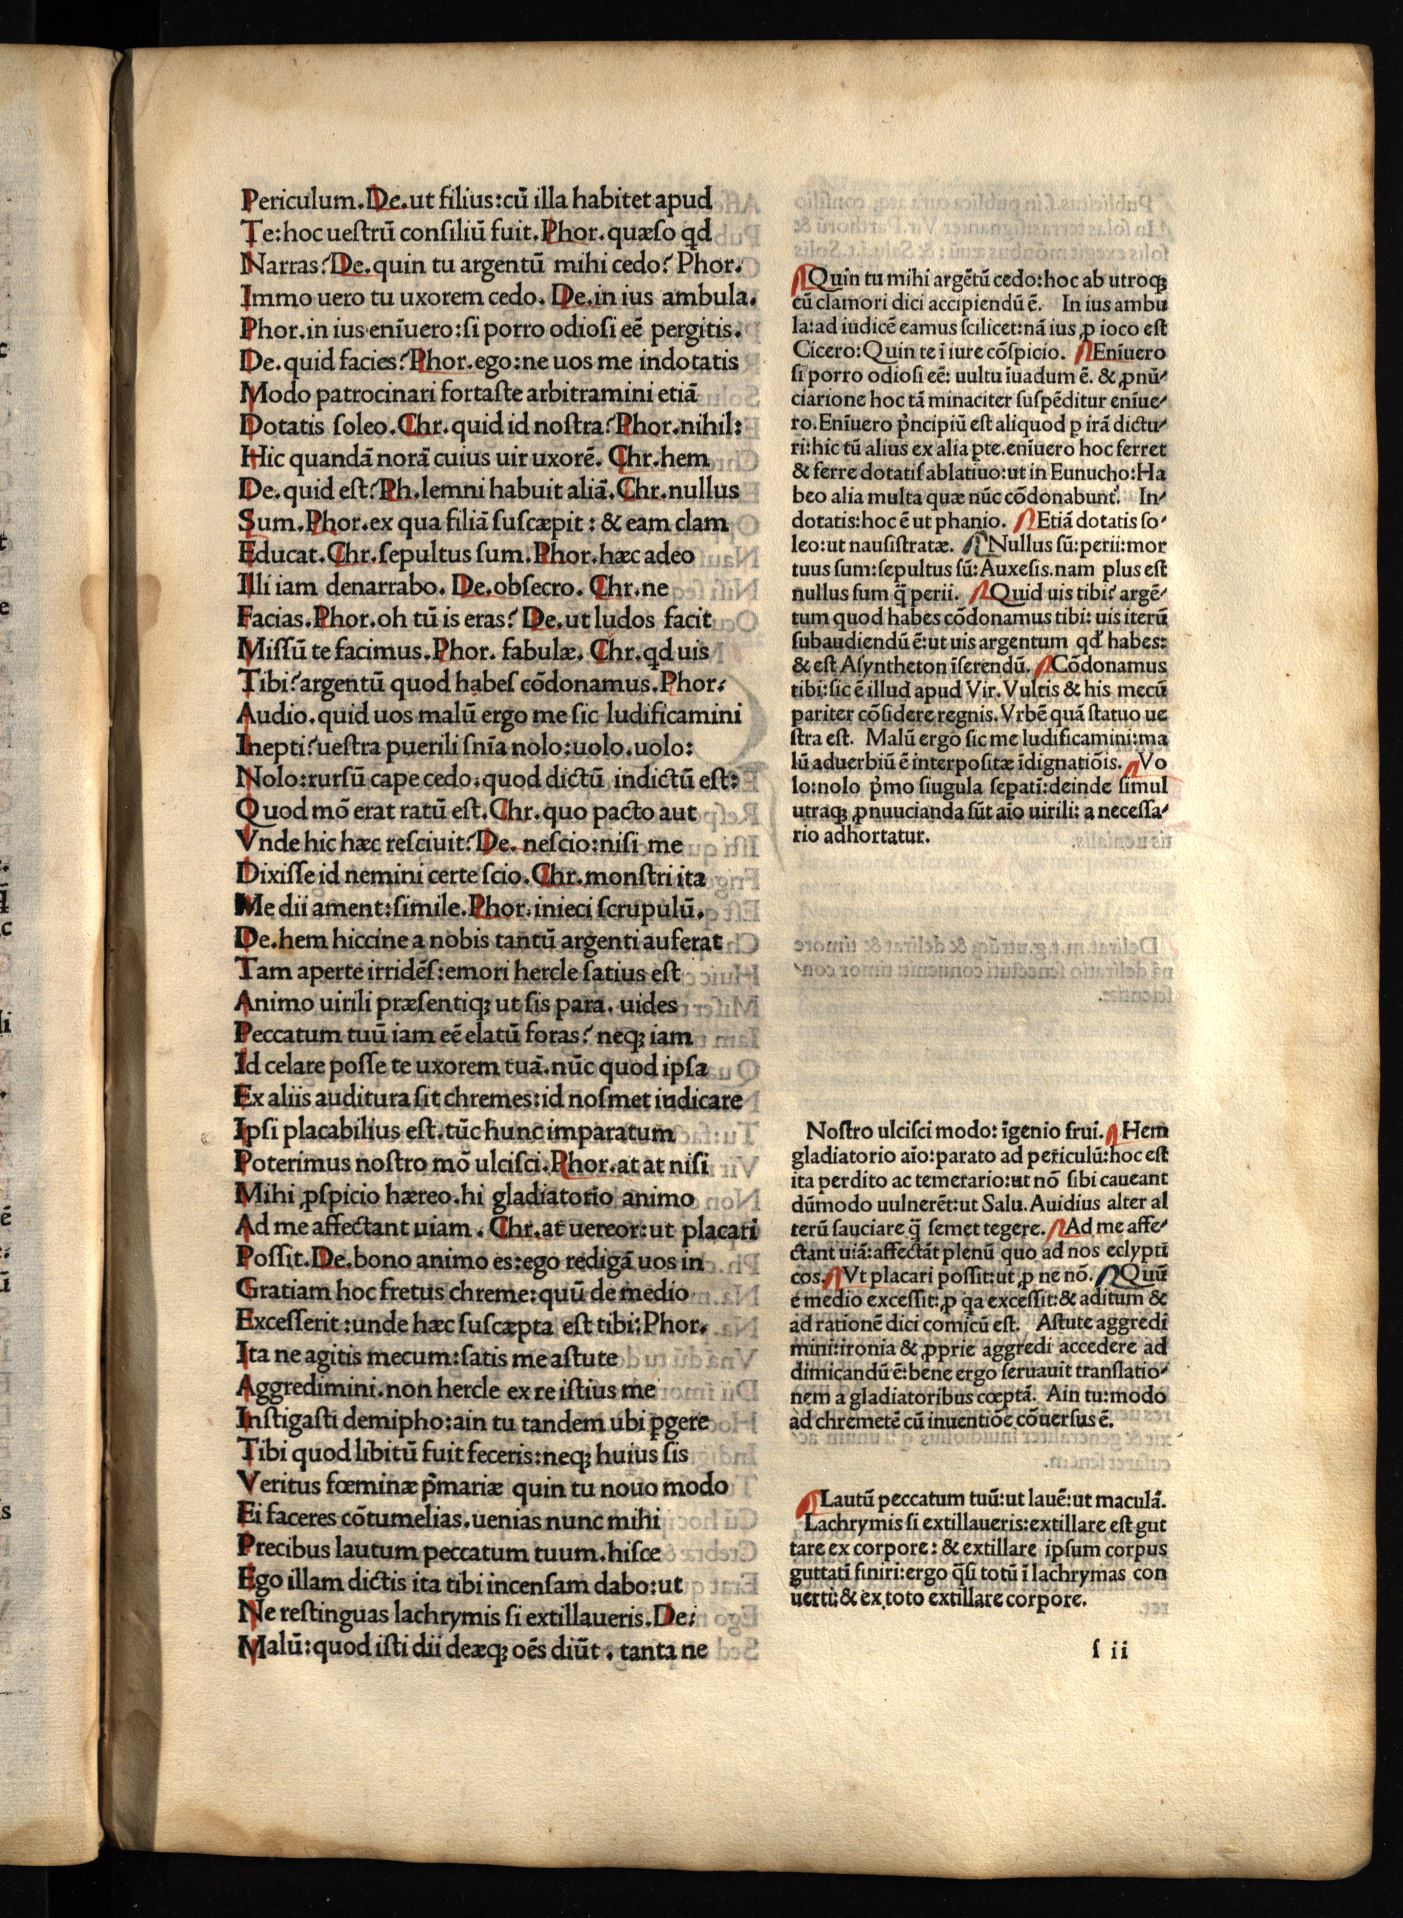 Periculum.De.ut filius:cū illa habitet apud
Te:hoc uestrū consiliū fuit.Phor.quæso qd
Narras?De.quin tu argentū mihi cedo?Phor.
Immo uero tu uxorem cedo.De.in ius ambula.
Phor.in ius enīuero:si porro odiosi eē pergitis.
De.quid facies?Phor.ego:ne uos me indotatis
Modo patrocinari fortaste arbitramini etiā
Dotatis soleo.Chr.quid id nostra?Phor.nihil:
Hic quandā norā cuius uir uxorē.Chr.hem
De.quid est?Ph.lemni habuit aliā.Chr.nullus
Sum.Phor.ex qua filiā suscæpit:& eam clam
Educat.Chr.sepultus sum.Phor.hæc adeo
Illi iam denarrabo.De.obsecro.Chr.ne
Facias.Phor.oh tū is eras?De.ut ludos facit
Missū te facimus.Phor.fabulæ.Chr.qd uis
Tibi?argentū quod habes cōdonamus.Phor.
Audio.quid uos malū ergo me sic ludificamini
Inepti?uestra puerili snīa nolo:uolo.uolo:
Nolo:rursū cape cedo.quod dictū indictū est:
Quod mō erat ratū est.Chr.quo pacto aut
Vnde hic hæc resciuit?De.nescio:nisi me
Dixisse id nemini certe scio.Chr.monstri ita
Me dii ament:simile.Phor.inieci scrupulū.
De.hem hiccine a nobis tantū argenti auferat
Tam aperte irridēs:emori hercle satius est
Animo uirili præsentiqꝫ ut sis para.uides
Peccatum tuū iam eē elatū foras?neqꝫ iam
Id celare posse te uxorem tuā.nūc quod ipsa
Ex aliis auditura sit chremes:id nosmet indicare
Ipsi placabilius est.tūc hunc imparatum
Poterimus nostro mō ulcisci.Phor.at at nisi
Mihi ꝓspicio hæreo.hi gladiatorio animo
Ad me affectant uiam.Chr.at uereor:ut placari
Possit.De.bono animo es:ego redigā uos in
Gratiam hoc fretus chreme:quū de medio
Excesserit:unde hæc suscæpta est tibi:Phor.
Ita ne agitis mecum:satis me astute
Aggredimini.non hercle ex re istius me
Instigasti demipho:ain tu tandem ubi ꝑgere
Tibi quod libitū fuit feceris:neqꝫ huius sis
Veritus fœminæ p̄mariæ quin tu nouo modo
Ei faceres cōtumelias.uenias nunc mihi
Precibus lautum peccatum tuum.hisce
Ego illam dictis ita tibi incensam dabo:ut
Ne restinguas lachrymis si extillaueris.De:
Malū:quod isti dii deæqꝫ oēs diūt.tanta ne
Quin tu mihi argētū cedo:hoc ab utroqꝫ
cū clamori dici accipiendū ē. In ius ambu
la:ad iudicē eamus scilicet:nā ius ꝓ ioco est
Cicero:Quin te ī iure cōspicio. Enīuero
si porro odiosi eē: uultu īuadum ē. & ꝓnū-
ciarione hoc tā minaciter suspēditur enīue-
ro.Enīuero p̄ncipiū est aliquod ꝑ irā dictu-
ri:hic tū alius ex alia ꝑte.enīuero hoc ferret
& ferre dotatis ablatiuo:ut in Eunucho:Ha
beo alia multa quæ nūc cōdonabunt̃. In-
dotatis:hoc ē ut phanio. Etiā dotatis so-
leo:ut nausistratæ. Nullus sū:perii:mor
tuus sum:sepultus sū:Auxesis.nam plus est
nullus sum q̄ perii. Quid uis tibi?argē-
tum quod habes cōdonamus tibi:uis iterū
subaudiendū ē:ut uis argentum qd̕ habes:
& est Asyntheton īserendū. Cōdonamus
tibi:sic ē illud apud Vir.Vultis & his mecū
pariter cōsidere regnis.Vrbē quā statuo ue
stra est. Malū ergo sic me ludificamini:ma
lū aduerbiū ē interpositæ īdignatiōis. Vo
lo:nolo p̄mo siugula sepatī:deinde simul
utraqꝫ ꝓnuucianda sūt aīo uirili:a necessa-
rio adhortatur.
Nostro ulcisci modo:īgenio frui. Hem
gladiatorio aīo:parato ad periculū:hoc est
ita perdito ac temerario:ut nō sibi caueant
dūmodo uulnerēt:ut Salu.Auidius alter al
terū sauciare q̄ semet tegere. Ad me affe-
ctant uiā:affectāt plenū quo ad nos eclypti
cos. Vt placari possit:ut ꝓ ne nō. Quū
e medio excessit:ꝓ q̄a excessit:& aditum &
ad rationē dici comicū est. Astute aggredi
mini:ironia & ꝓprie aggredi accedere ad
dimicandū ē:bene ergo seruauit translatio-
nem a gladiatoribus cœptā. Ain tu:modo
ad chremetē cū inuentiōe cōuersus ē.
Lautū peccatum tuū:ut lauē:ut maculā.
Lachrymis si extillaueris:extillare est gut
tare ex corpore:& extillare ipsum corpus
guttatī finiri:ergo q̄si totū ī lachrymas con
uerti:& ex toto extillare corpore.
s ii